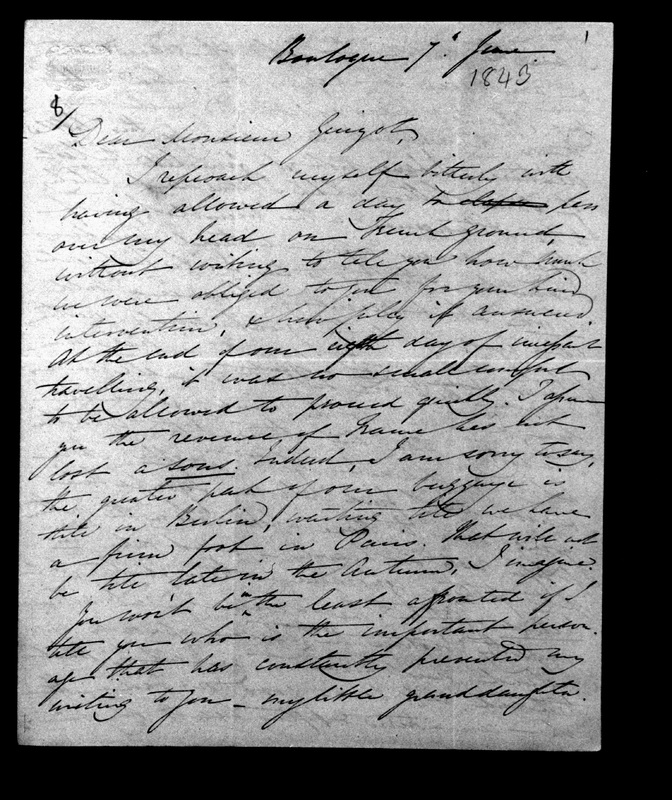 1
Boulogne 7th June
1843
8/
Dear Monsieur Guizot,
I reproach myself bitterly with
having allowed a day to elapse pass
over my head on French ground,
without writing to tell you how much
we were obliged to you for your kind
intervention, & how fully it answered.
At the end of our eighth day of incessant
travelling, it was no small comfort
to be allowed to proceed quietly. I assure
you the revenue of France has not
lost a sous. Indeed, I am sorry to say,
the greater part of our baggage is
still in Berlin, waiting till we have
a firm foot in Paris. That will not
be till late in the Autumn, I imagine.
You won't be in the least affronted if I
tell you who is the important person-
age that has constantly prevented my
writing to you – my little granddaughter.